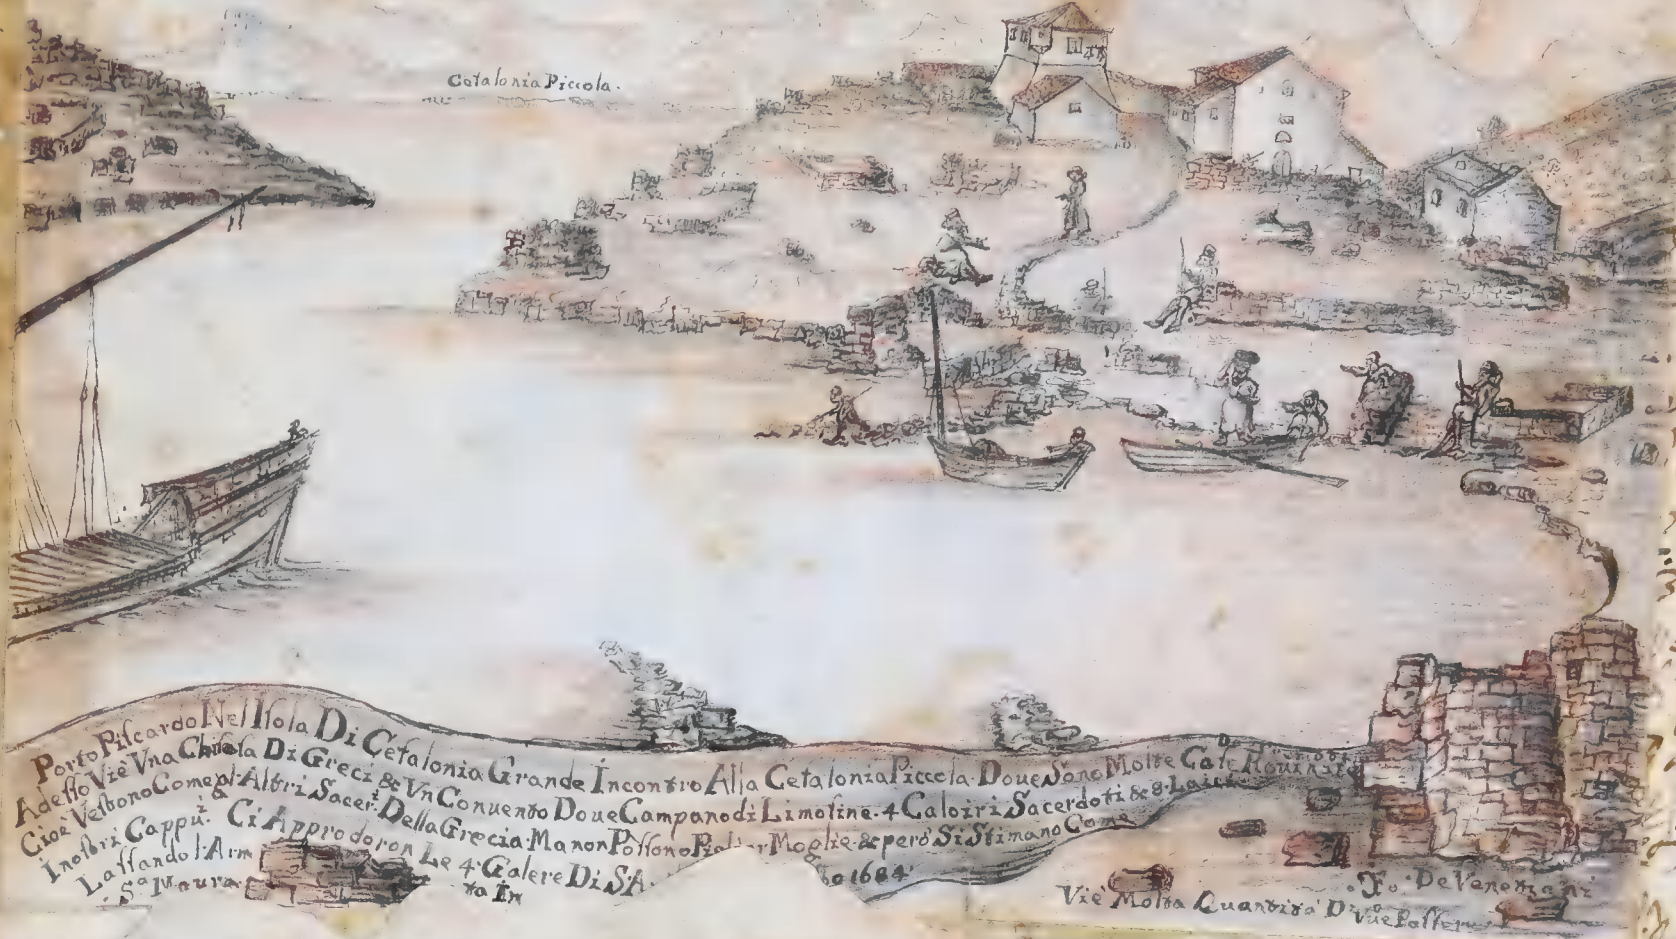 Cefalonia Piccola.
Porto Piscardo Nel Isola Di Cefalonia Grande Incontro Alla Cefalonia Piccola. Doue Sono Molte Case Rouinate
Adesso Viè Vna Chiesola Di Greci & Vn Conuento Doue Campano di Limosine. 4 Caloiri Sacerdoti & 8. Laici
Cioè Vestono Come gl'Altri Sacer.i Della Grecia. Ma non Possono Pigliar Moglie. & però Si Stimano Come
I nostri Cappu.i Ci Approdoron Le 4. Galere Di S.A.
Lassando l'Arm ta In 1684
S.a Maura
Viè Molta Quantità Di Vue Passer